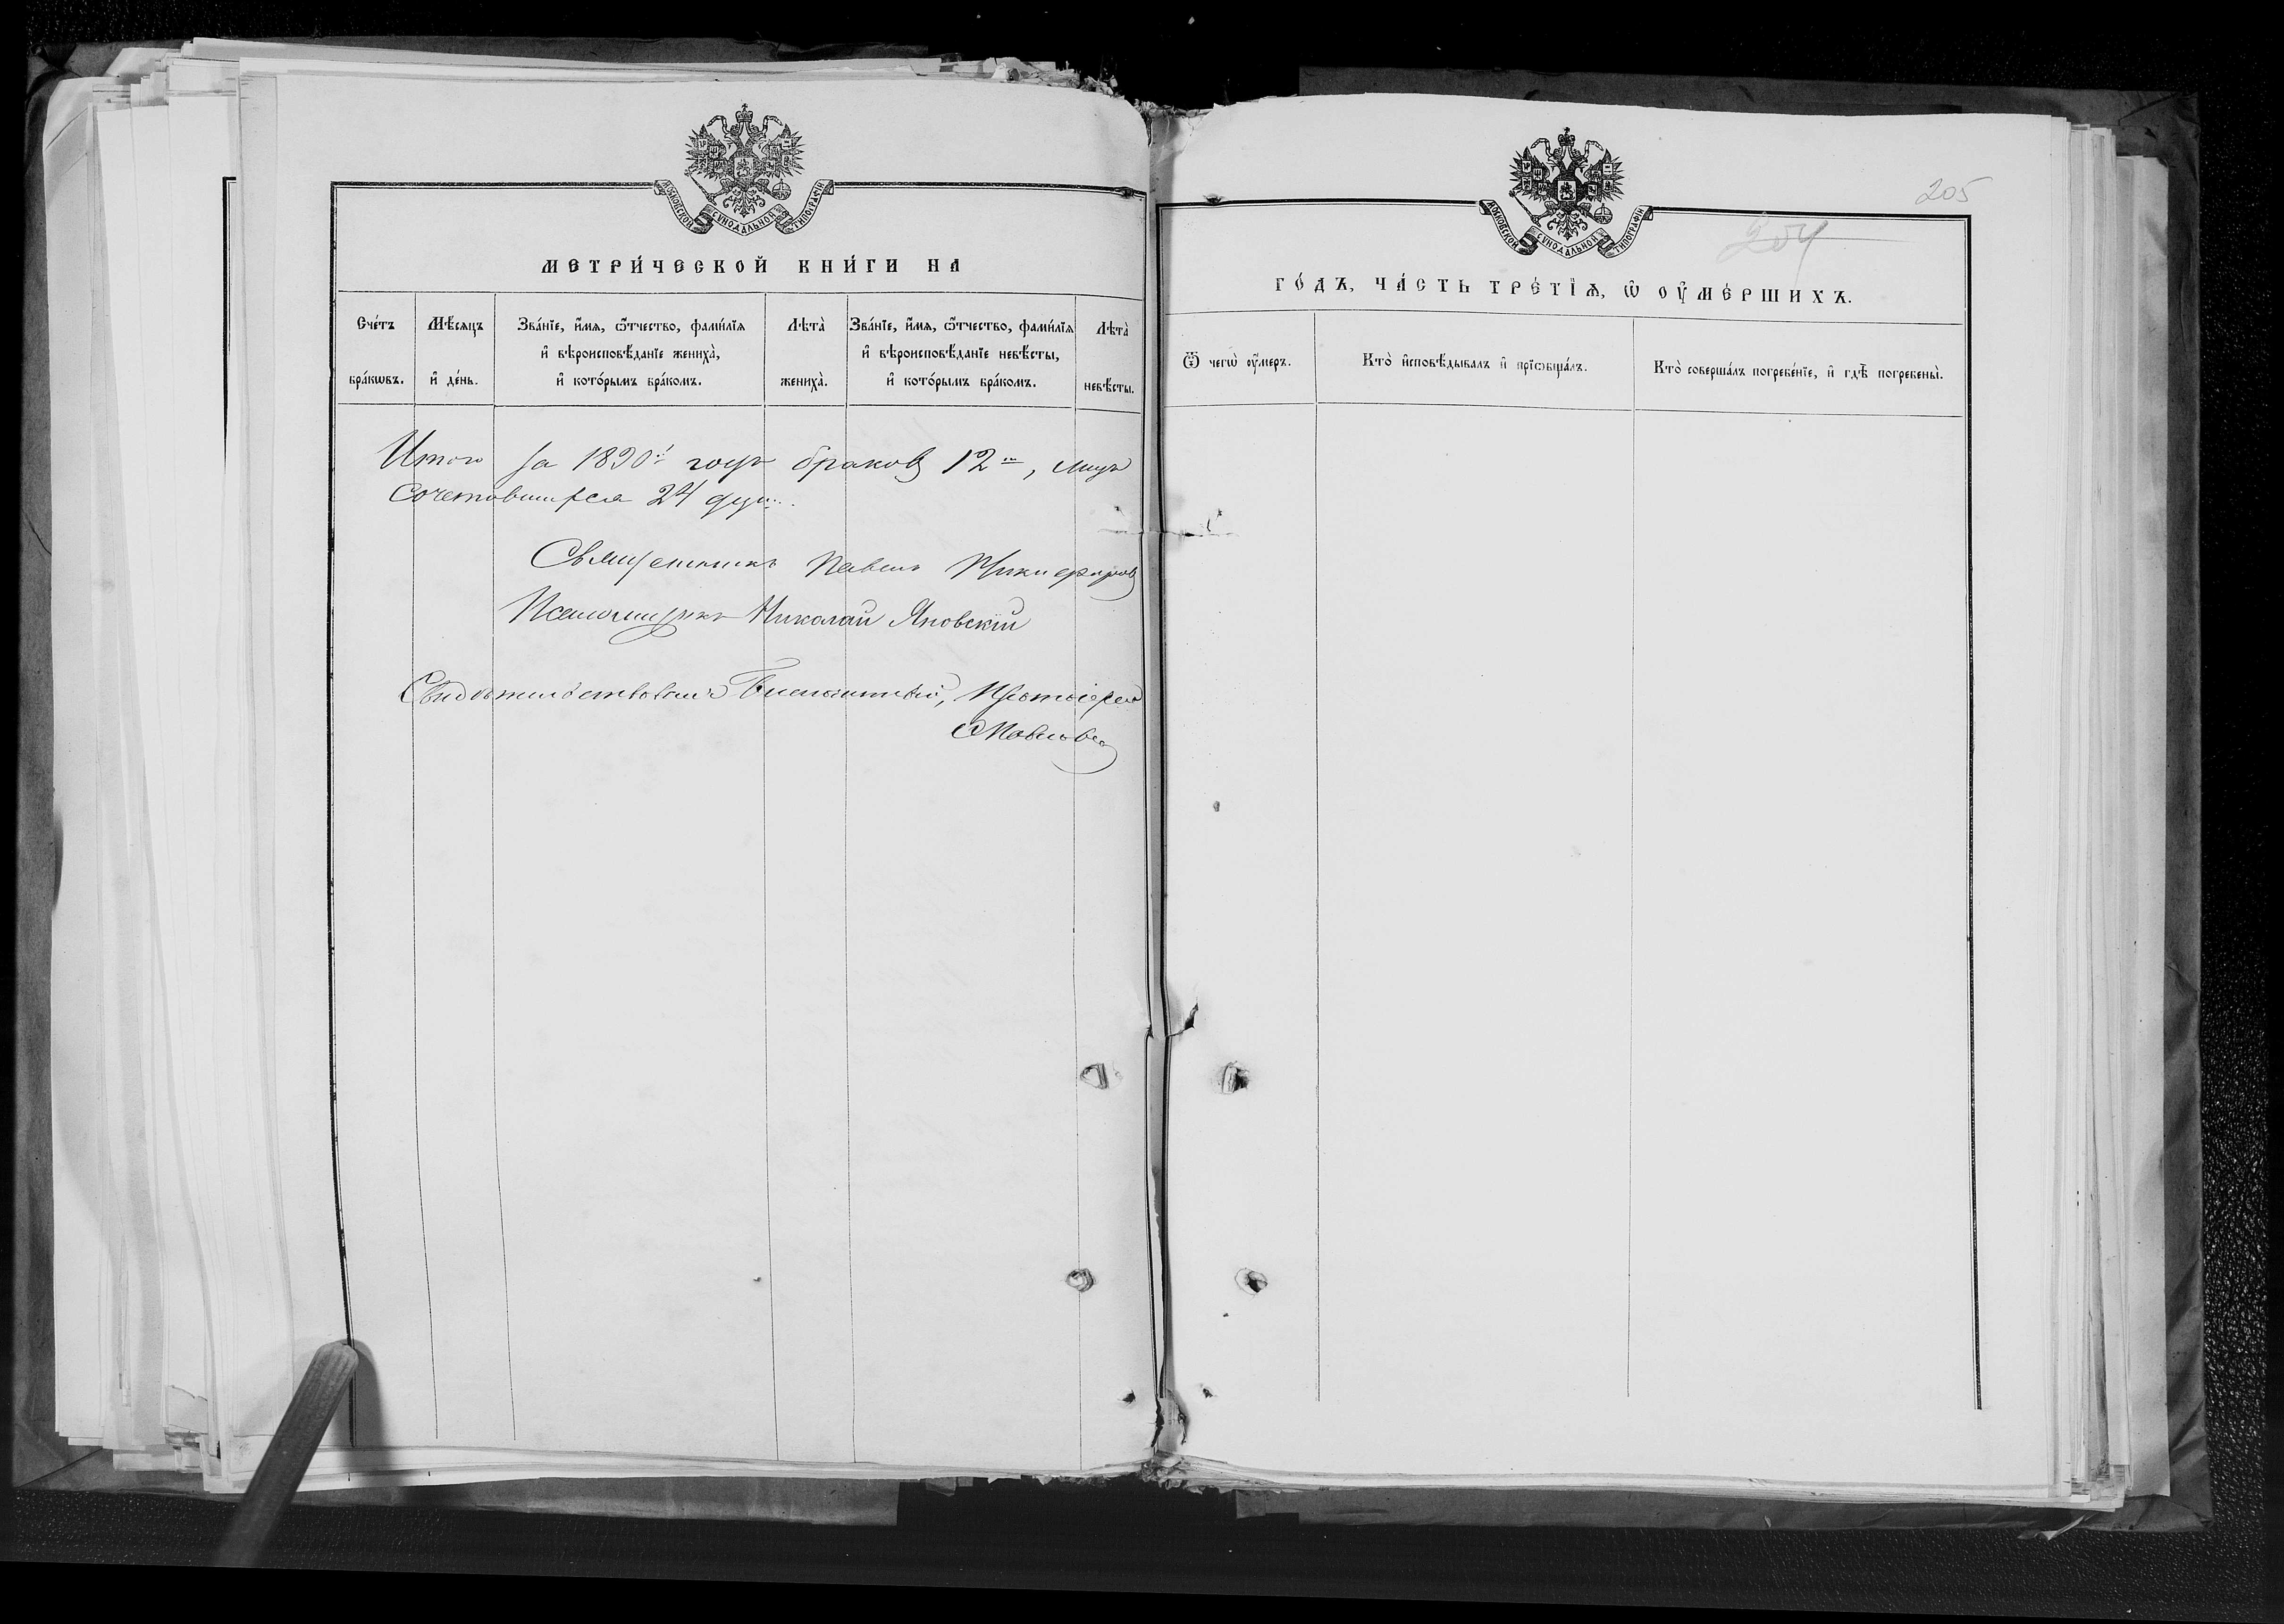 МОСКОВСКОЙ СѴНОДАЛЬНОЙ ТИПОГРАФІИ
МЕТРИ́ЧЕСКОЙ КНИ́ГИ НА
Сче́тъ бра́кѡвъ.
Мѣ́сѧцъ и҆ де́нь.
Зва́нїе, и҆́мѧ, ѻ҆́тчество, фами́лїѧ и҆ вѣроисповѣ́данїе жениха̀, и҆ кото́рымъ бра́комъ.
Лѣта̀ жениха̀.
Зва́нїе, и҆́мѧ, ѻ҆́тчество, фами́лїѧ и҆ вѣроисповѣ́данїе невѣ́сты, и҆ кото́рымъ бра́комъ.
Лѣта̀ невѣ́сты.
Итого за 1890й годъ браковъ 12ть, лицъ
сочетавшихся 24 душ.
Священникъ Павелъ Никифоров
Псаломщикъ Николай Яновскій
Свидѣтельствовалъ Благочинный, Протоіерей
Павловъ
МОСКОВСКОЙ СѴНОДАЛЬНОЙ ТИПОГРАФІИ
205
204
ГО́ДЪ, ЧА́СТЬ ТРЕ́ТЇѦ, Ѡ҆ ОУ҆МЕ́РШИХЪ.
Ѿ чегѡ̀ оу҆́меръ.
Кто̀ и҆сповѣ́дывалъ и҆ прїѡбща́лъ.
Кто̀ соверша́лъ погребе́нїе, и҆ гдѣ̀ погребены̀.